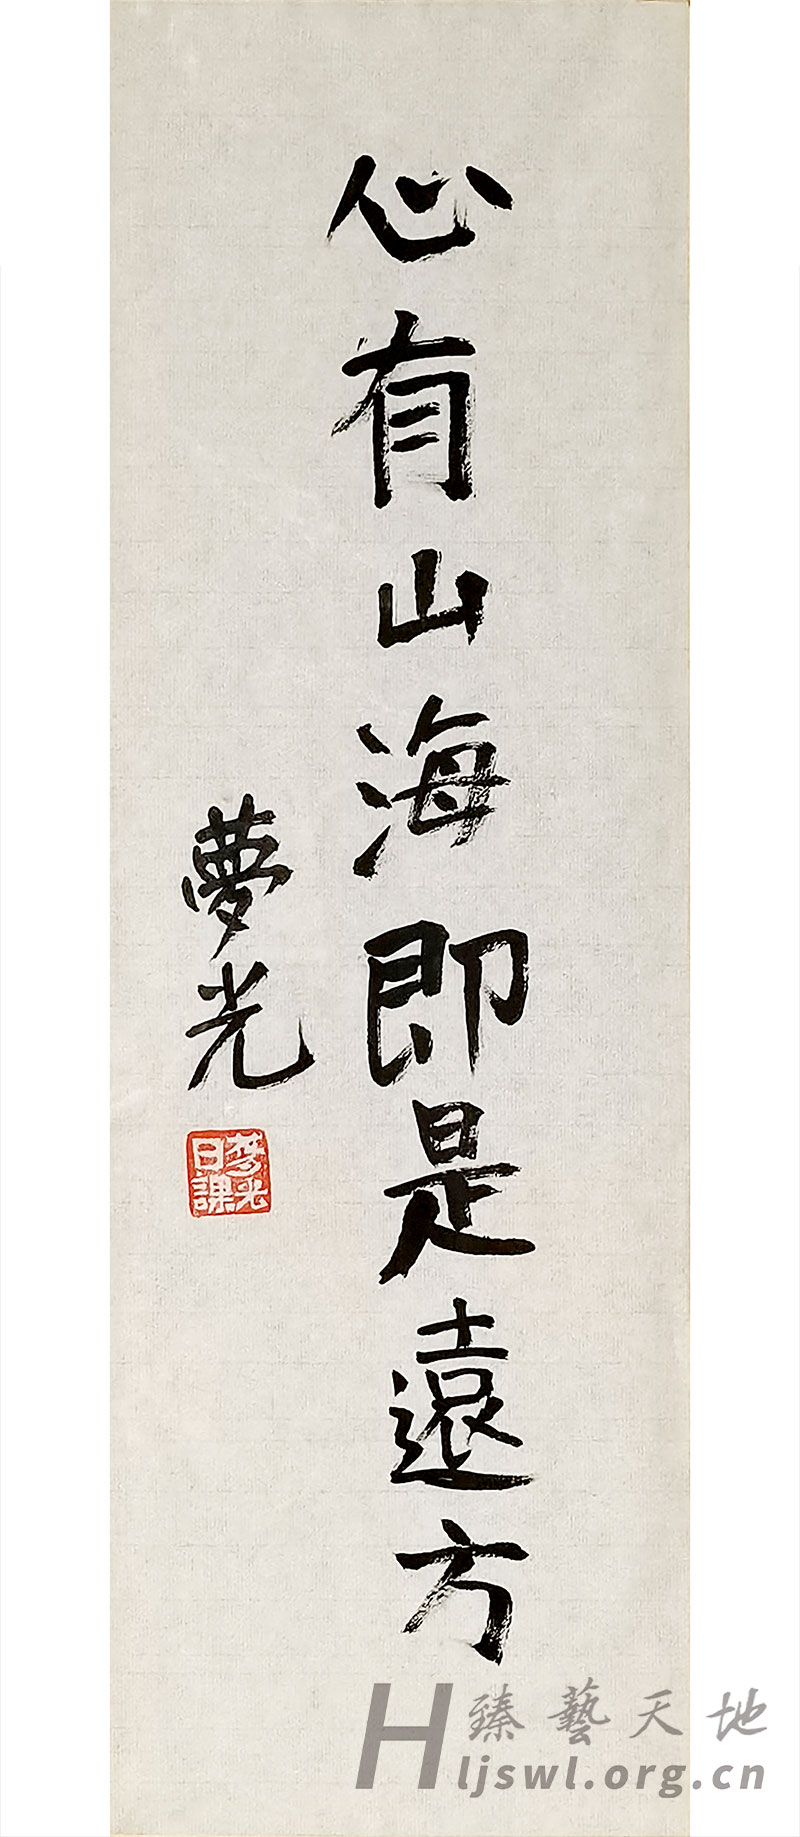 心有山海即是遠方
夢光
夢光
日課
臻藝天地
Hljswl.org.cn